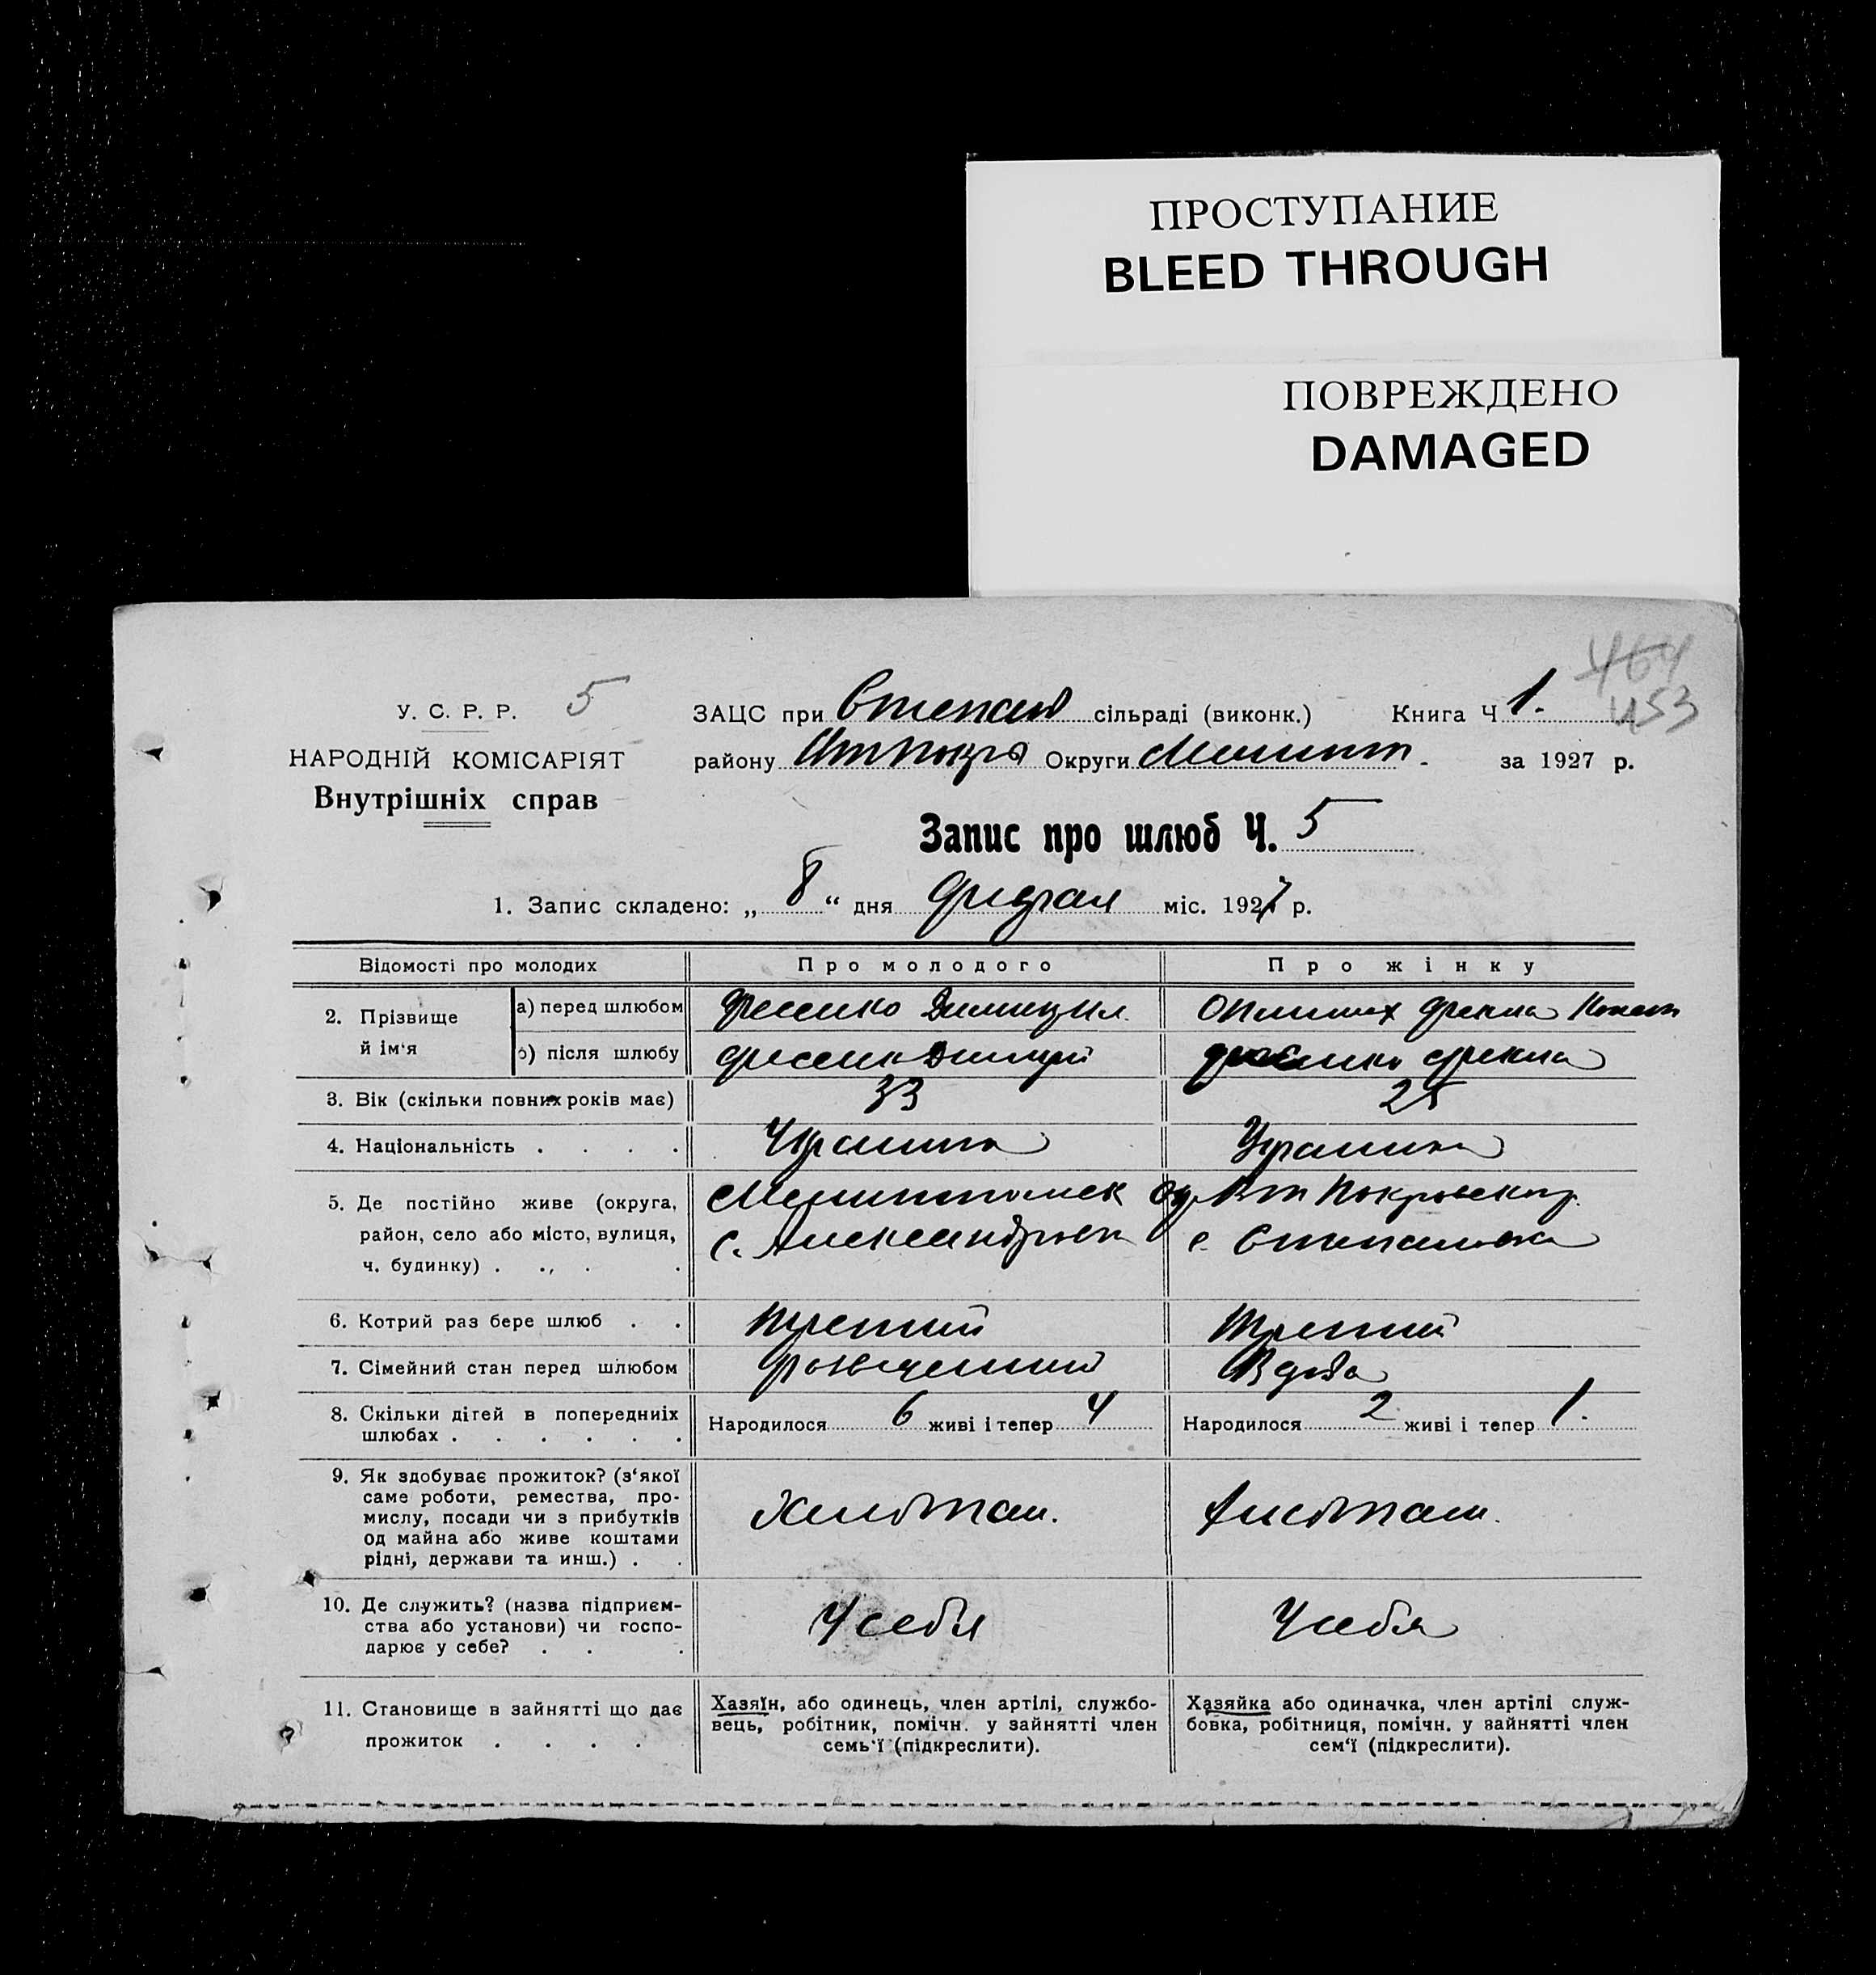 ПРОСТУПАНИЕ
BLEED THROUGH
ПОВРЕЖДЕНО
DAMAGED
464
453
У. С. Р. Р. 5
НАРОДНІЙ КОМІСАРІЯТ
Внутрішніх справ
ЗАЦС при Степан сільраді (виконк.) Книга Ч 1.
району Округи Мелит. за 1927 р.
Запис про шлюб Ч. 5
1. Запис складено: „ 8 “ дня міс. 1927 р.
Відомості про молодих Про молодого Про жінку
2. Прізвище й ім‘я
а) перед шлюбом Фесенко Фекла
б) після шлюбу Фесенк Дмитрй Фесенко Фекла
3. Вік (скільки повних років має) 33 25
4. Національність . . . . Украинка
5. Де постійно живе (округа, Мелитополек Окр. Покровскаго р.
район, село або місто, вулиця, с. Александровк с. Степановка
ч. будинку) . . , . .
6. Котрий раз бере шлюб . . третий третий
7. Сімейний стан перед шлюбом Вдова
8. Скільки дітей в попередниіх Народилося 6 живі і тепер 4 Народилося 2 живі і тепер 1.
шлюбах . . . . . .
9. Як здобуває прожиток? (з‘якої
саме роботи, ремества, про-
мислу, посади чи з прибутків Хлебопаш. Хлебопаш.
од майна або живе коштами
рідні, держави та инш.) . .
10. Де служить? (назва підприєм-
ства або установи) чи госпо- У себя У себя
дарює у себе? . . .
11. Становище в зайнятті що дає
прожиток . . . .
Хазяїн, або одинець, член артілі, службо-
вець, робітник, помічн. у зайнятті член
семь‘ї (підкреслити).
Хазяйка або одиначка, член артілі служ-
бовка, робітниця, помічн. у зайнятті член
сем‘ї (підкреслити).